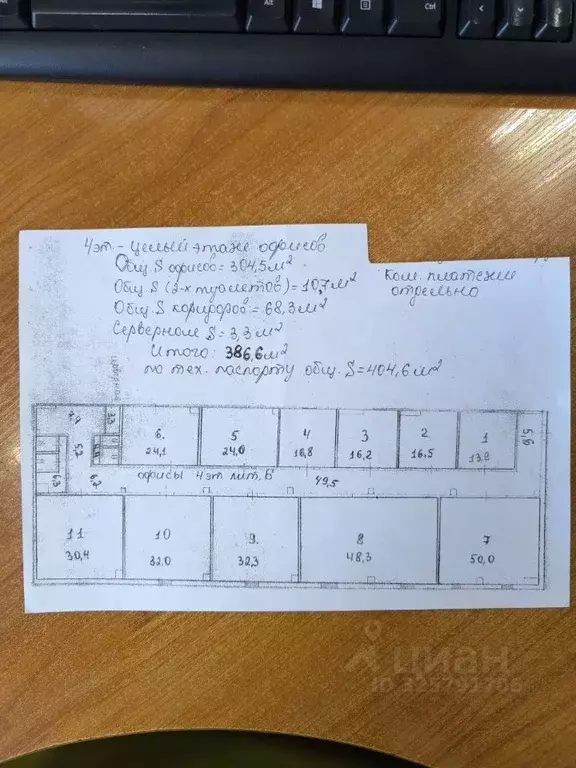 4эт - целый этаж офисов
Общ. S офисов = 304,5 м²
Общ. S (2-х туалетов) = 10,7 м²
Общ. S коридоров = 68,3 м²
Серверном S = 3,3 м²
Итого: 386,6 м²
по тех. паспорту общ. S = 404,6 м²
Ком. платежи
отдельно
6. 5 4 3 2 1
24,1 24,0 16,8 16,2 16,5 13,9
5,6
3,3
5,2
офисы 4эт лит. Б
49,5
11 10 9. 8 7
30,4 32,0 32,3 48,3 50,0
циан
Alt
Ctrl